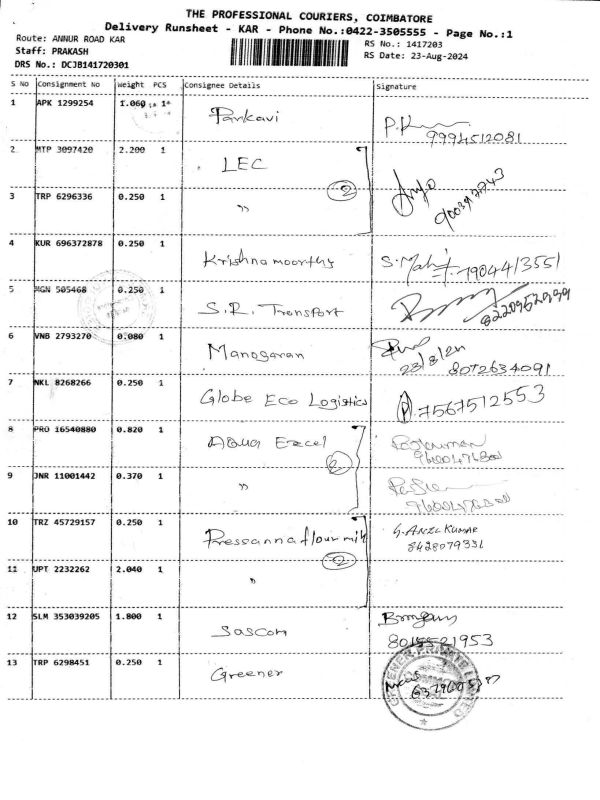 THE PROFESSIONAL COURIERS, COIMBATORE
Delivery Runsheet - KAR - Phone No.:0422-3505555 - Page No.:1
Route: ANNUR ROAD KAR
RS No.: 1417203
Staff: PRAKASH
RS Date: 23-Aug-2024
DRS No.: DCJB141720301
S No Consignment No Weight PCS Consignee Details Signature
1 APK 1299254 1.060 1 Parkavi
9994512081
2 MTP 3097420 2.200 1 LEC
2
3 TRP 6296336 0.250 1 "
4 KUR 696372878 0.250 1 Krishnamoorthy
7904413551
5 MGN 505468 0.250 1 S.R. Transport
8220952999
6 VNB 2793270 0.080 1 Manogaran
23/8/24
8072634091
7 NKL 8268266 0.250 1 Globe Eco Logistics 7567512553
8 PRO 16540880 0.820 1 Aqua Excel
2
9 JNR 11001442 0.370 1 "
10 TRZ 45729157 0.250 1 Pressanna flour mill
2
8428079331
11 UPT 2232262 2.040 1 "
12 SLM 353039205 1.800 1 Sascom
8015521953
13 TRP 6298451 0.250 1 Greener